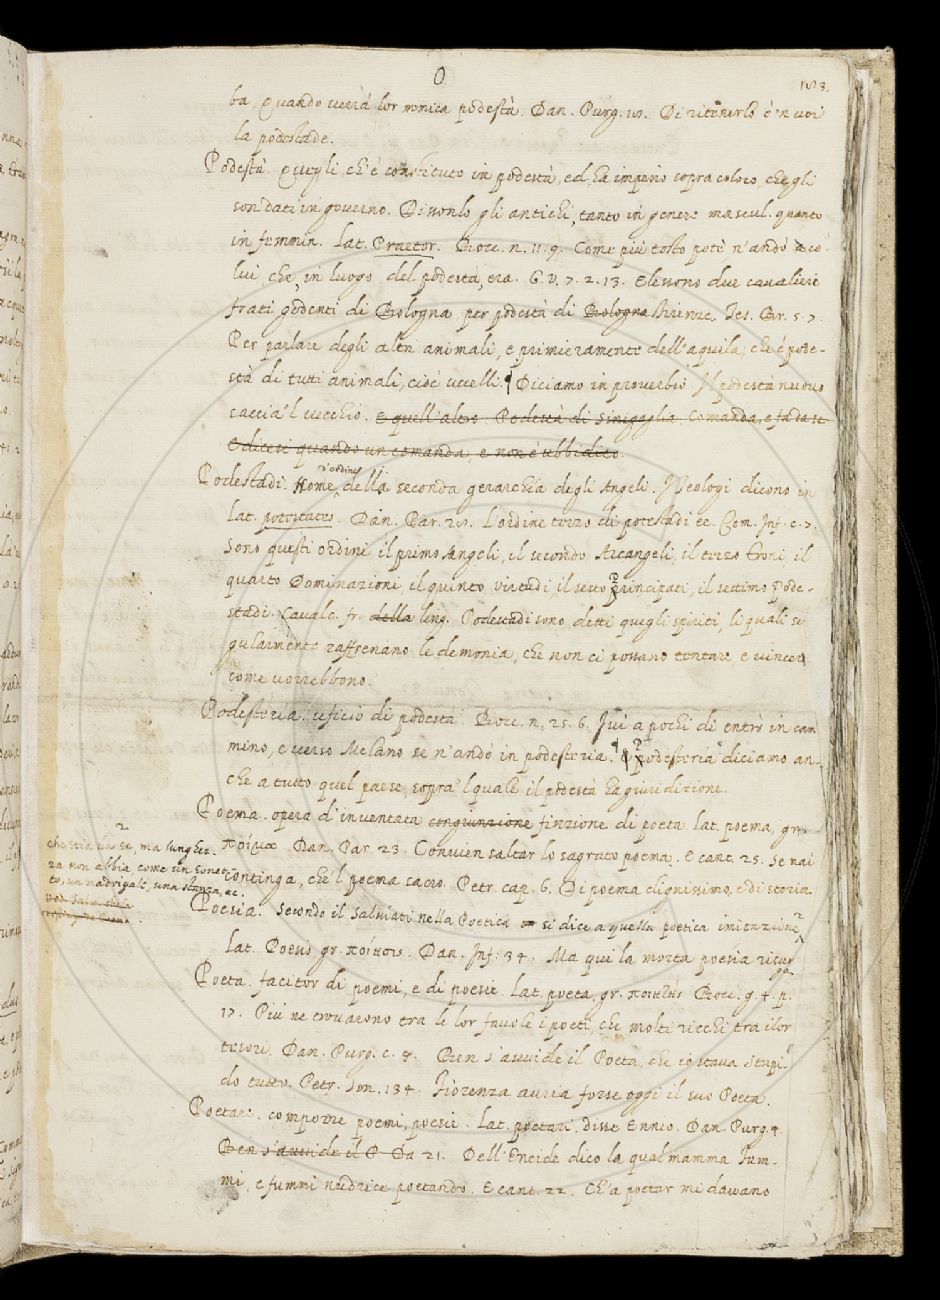 O
ba, Quando verrà lor nimica podestà. Dan. Purg. Di ritenerlo è 'n voi
la podestade.
Podestà. Quegli, ch'è constituto in podestà, ed ha imperio sopra coloro, che gli
son dati in governo. Dissonlo gli antichi, tanto in genere mascul. quanto
in femmin. Lat. Praetor. Bocc. n. 11. 9. Come più tosto potè n'andò a co-
lui, che, in luogo del podestà, era. G. V. 7. 2. 13. Elessono due cavalieri
frati godenti di Bologna, per podestà di Bologna Firenze. Tes. Br. 5. 7.
Per parlare degli altri animali, e primieramente dell'aquila, che è pode-
stà di tutti animali, cioè uccelli. Diciamo in proverbio Il podestà nuovo
caccia 'l vecchio. E quell'altro Podestà di Sinigaglia Comanda, e fa da se
E dicesi quando un comanda, e non è ubbidito.
Podestadi. Nome d'ordine della seconda gerarchia degli Angeli. I Teologi dicono in
Lat. potestates. Dan. Par. 28. L'ordine terzo di potestadi ee. Com. Inf. c. 7.
Sono questi ordini il primo Angeli, il secondo Arcangeli, il terzo Troni, il
quarto Dominazioni, il quinto virtudi, il sesto principati, il settimo Pode-
stadi. Cavalc. fr. della ling. Podestadi sono detti quegli spiriti, li quali si
gularmente raffrenano le demonia, che non ci possano tentare, e vincer
come vorrebbono.
Podesteria. uficio di podestà. Bocc. n. 25. 6. Ivi a pochi dì entrò in cam
mino, e verso Melano se n'andò in podesteria. podesteria diciamo an-
che a tutto quel paese, sopra 'l quale il podestà ha giuridizione.
Poema. opera d'inventata finzione di poeta. lat. poema, gr.
ποίημα. Dan. Par. 23. Convien saltar lo sagrato poema. E cant. 25. Se mai
continga, che 'l poema sacro. Petr. cap. 6. Di poema dignissimo, e di storia.
che stia da se, ma lunghez-
za non abbia, come un sonet
to, un madrigale, una stanza, ec.
Poesia. Secondo il Salviati nella Poetica si dice a questa poetica imitazione
Lat. Poesis gr. ποίησις. Dan. Inf. 34. Ma qui la morta poesia risur
ga
Poeta. facitor di poemi, e di poesie. Lat. poeta, gr. ποιητὴς Bocc. g. 4. p.
17. Più ne trovarono tra le lor favole i poeti, che molti ricchi tra i lor
tesori. Dan. Purg. c. 4. Ben s'avvide il Poeta, che io stava stupi-
do tutto. Petr. son. 134. Fiorenza avria forse oggi il suo Poeta.
Poetare. comporre poemi, poesie. Lat. poetari, disse Ennio. Dan. Purg. 4.
Ben s'avvide il P Da 21. Dell'Eneide dico la qual mamma Fum-
mi, e fummi nudrice poetando. E cant. 22. Ch'a poetar mi davano